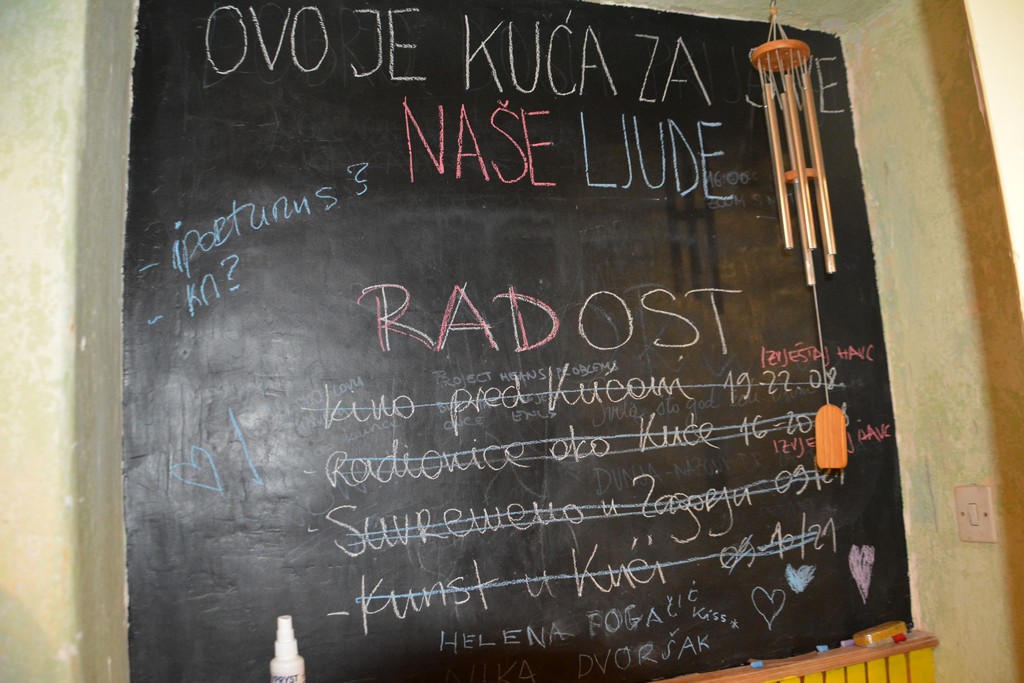 OVO JE KUĆA ZA
NAŠE LJUDE
- iportunus?
- KN?
RADOST
IZVJEŠTAJ HAVC
- Kino pred Kućom 19-22.08.
- Radionice oko Kuće 16-20.
- Suvremeno u Zagorju 09/21
- Kunst u Kući 09-10/21
HELENA FOGAČIĆ
Kiss*
NIKA DVORŠAK